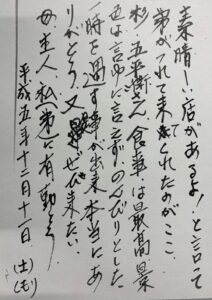 素晴しい店があるよ!と言って
弟がつれて来てくれたのがここ、
杉・五平衛さん。食事は最高景
色は言めに言えずのんびりとした
一時を過す事が出来本当にあ
りがとう。又ぜひ来たい。
母、主人、私(弟)に有動とう
平成五年十二月十一日(土)